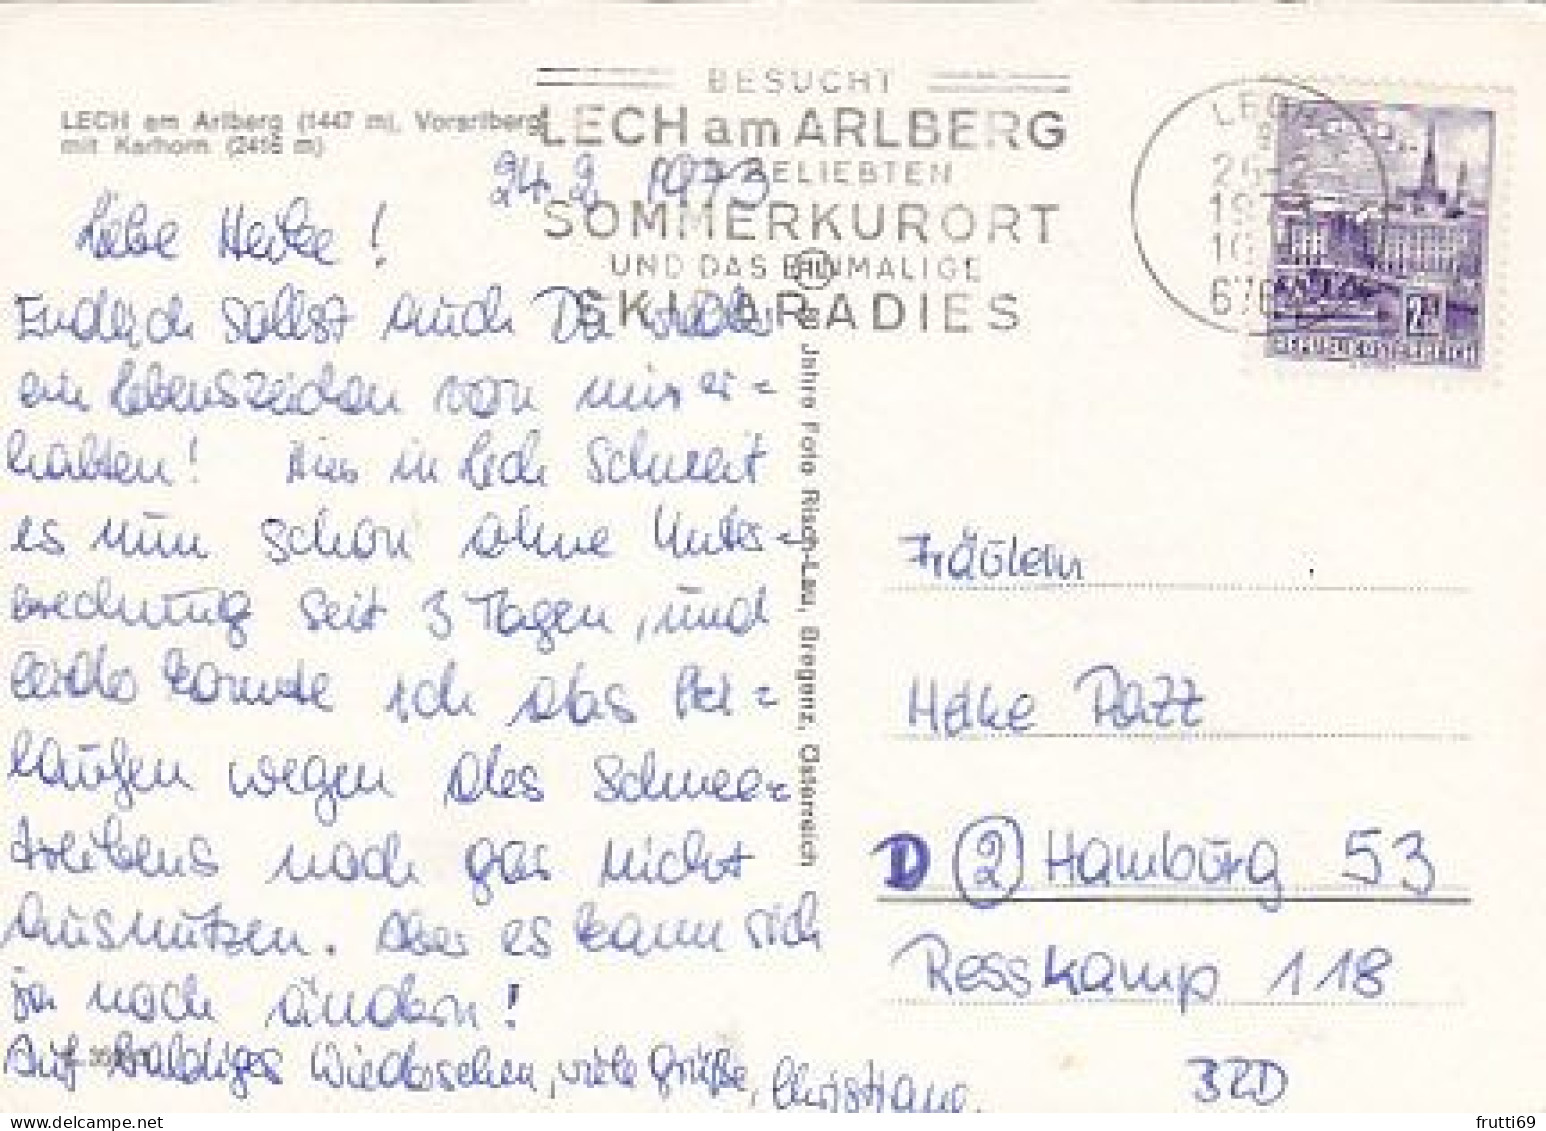 LECH am Arlberg (1447 m), Vorarlberg
mit Karhorn (2416 m)
BESUCHT
LECH am ARLBERG
BELIEBTEN
SOMMERKURORT
UND DAS EINMALIGE
SKIPARADIES
LECH
26-2
19
10
676
2.50
REPUBLIK ÖSTERREICH
24.2. 1973
Liebe Heike!
Endlich sollst auch Du wieder
ein Lebenszeichen von mir er=
halten! Hier in Lech schneit
es nun schon ohne Unter=
brechung seit 3 Tagen, und
leider konnte ich das Ski=
laufen wegen des Schnee=
treibens noch gar nicht
ausnutzen. Aber es kann sich
ja noch ändern!
Auf baldiges Wiedersehen, viele Grüße, Christiane.
Jahro Foto Risch-Lau, Bregenz, Österreich
Fräulein
Heike Ratz
D (2) Hamburg 53
Resskamp 118
32D
frutti69